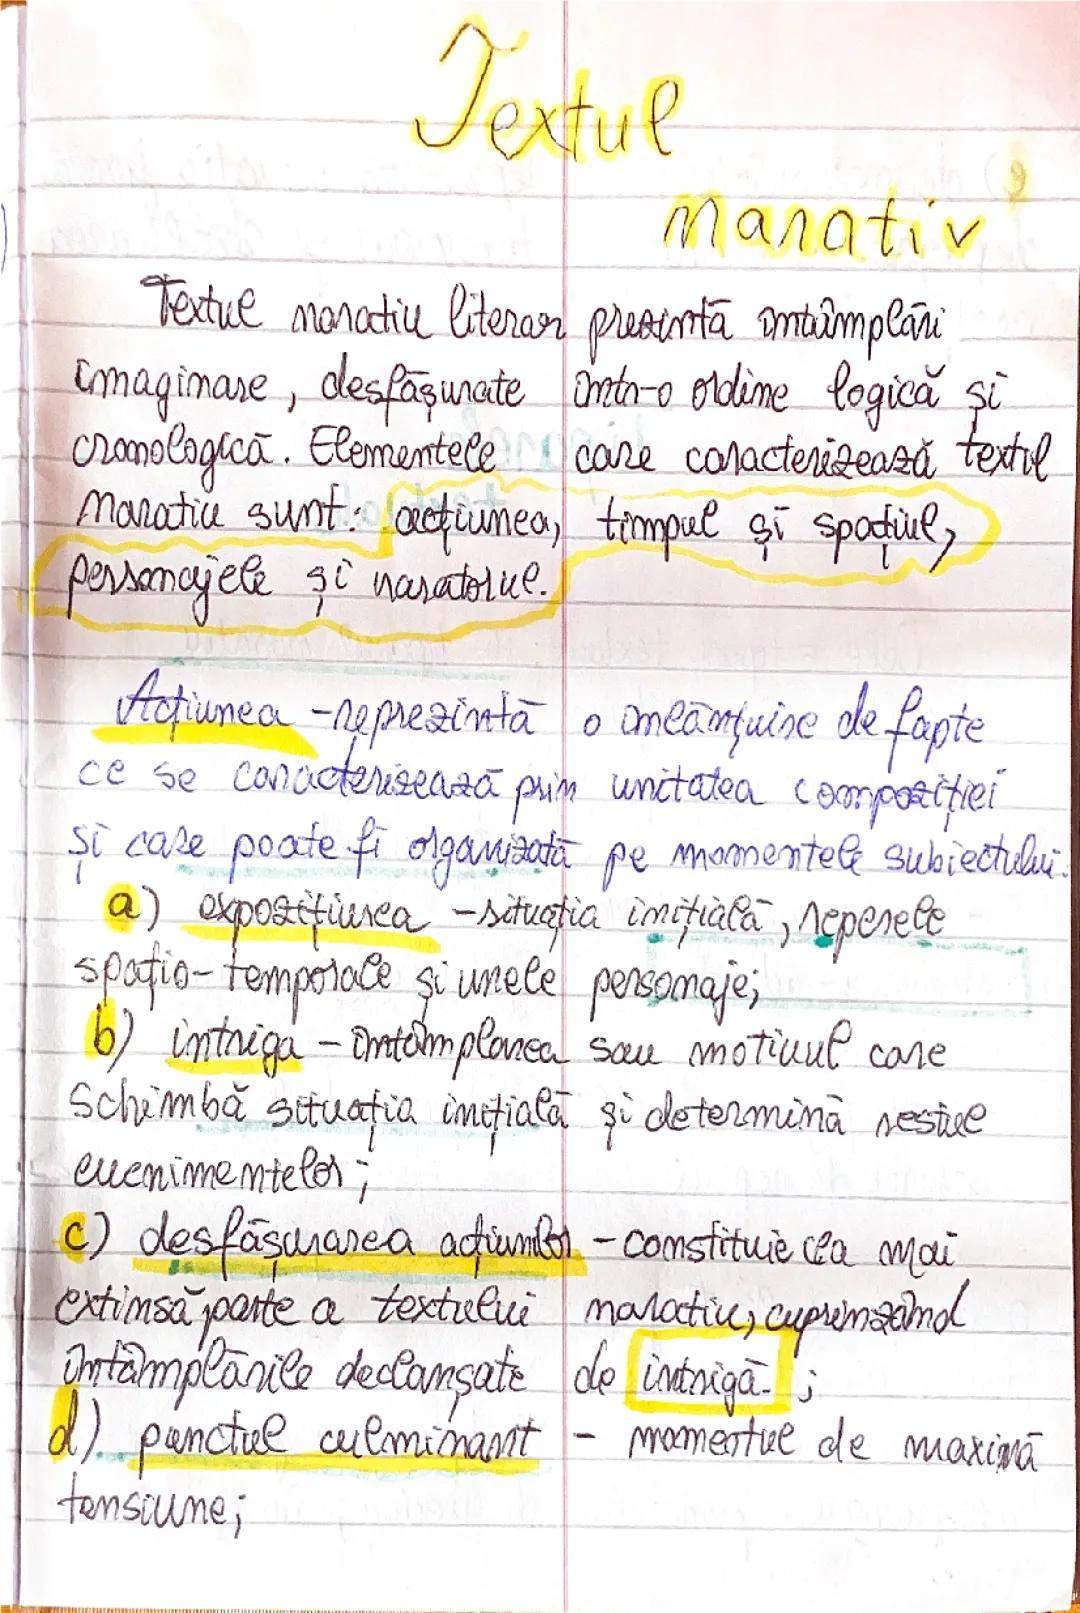 Textul
narativ
Textul narativ literar prezintă întâmplări
imaginare, desfășurate într-o ordine logică și
cronologică. Elementele care caracterizează textul
narativ sunt: acțiunea, timpul și spațiul,
personajele și naratorul.
Acțiunea - reprezintă o înlănțuire de fapte
ce se caracterizează prin unitatea compoziției
și care poate fi organizată pe momentele subiectului.
a) expozițiunea - situația inițială, reperele
spațio-temporale și unele personaje;
b) intriga - întâmplarea sau motivul care
schimbă situația inițială și determină restul
evenimentelor;
c) desfășurarea acțiunilor - constituie cea mai
extinsă parte a textului narativ, cuprinzând
întâmplările declanșate de intrigă.;
d). punctul culminant - momentul de maximă
tensiune;